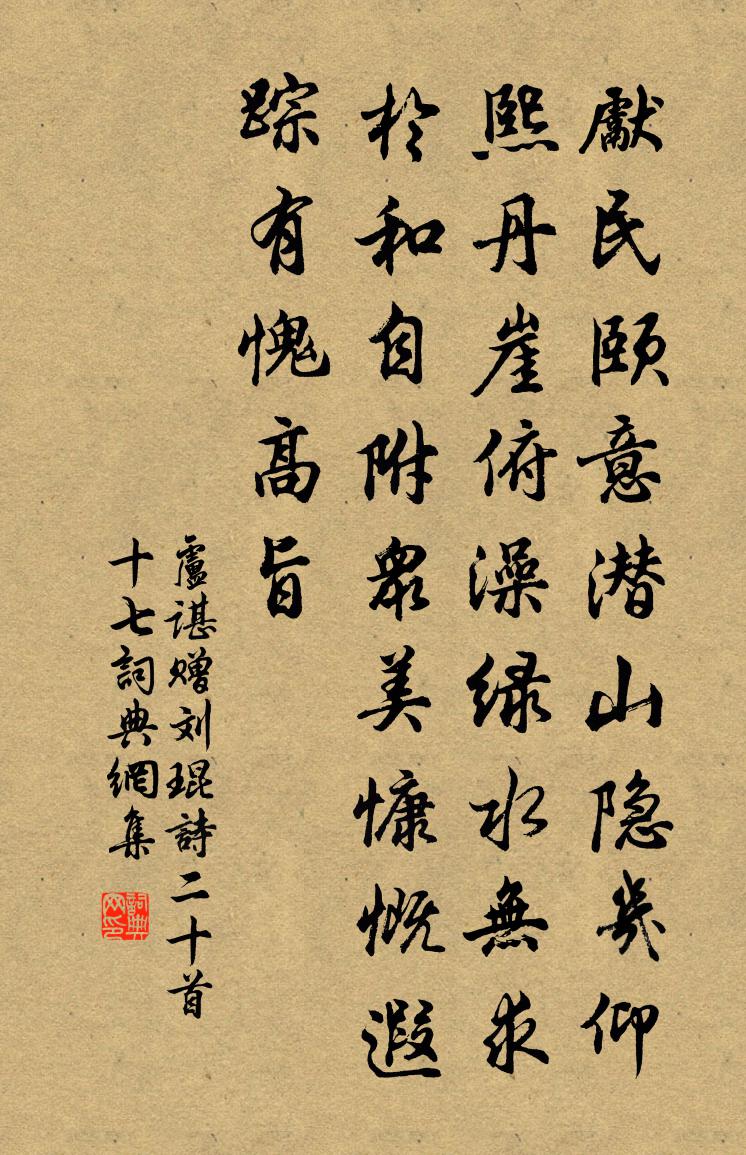 獻民頤意潜山隐幾仰
熙丹崖俯澡緑水無求
於和自附衆美慷慨遐
踪有愧高旨
盧諶赠刘琨詩二十首
十七詞典網集
詞典网印